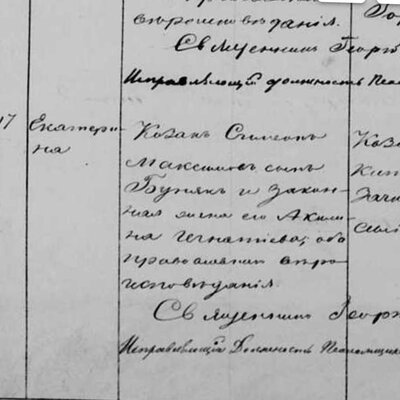 вѣроисповѣданія.
Священникъ Георг
Исправляющій должность Пса
Екатери-
на
Козакъ Симеонъ
Максимовъ сынъ
Бунякъ и закон-
ная жена его Акили-
на Игнатіева, обо
православнаго вѣро
исповѣданія.
Коза
Священникъ Георг
Исправляющій Должность Псаломщика